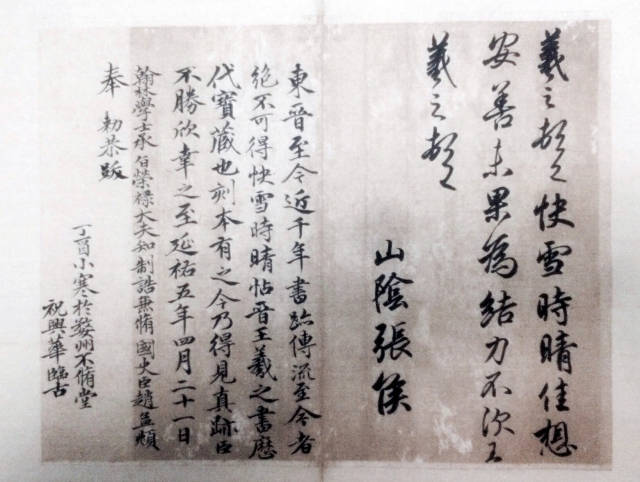 羲之頓首快雪時晴佳想
安善未果為結力不次王
羲之頓首
山陰張侯
東晉至今近千年書跡傳流至今者
絕不可得快雪時晴帖晉王羲之書歷
代寶藏也刻本有之今乃得見真跡臣
不勝欣幸之至延祐五年四月二十一日
翰林學士承旨榮祿大夫知制誥兼脩國史臣趙孟頫
奉勅恭跋
丁酉小寒於婺州不脩堂
祝興華臨古